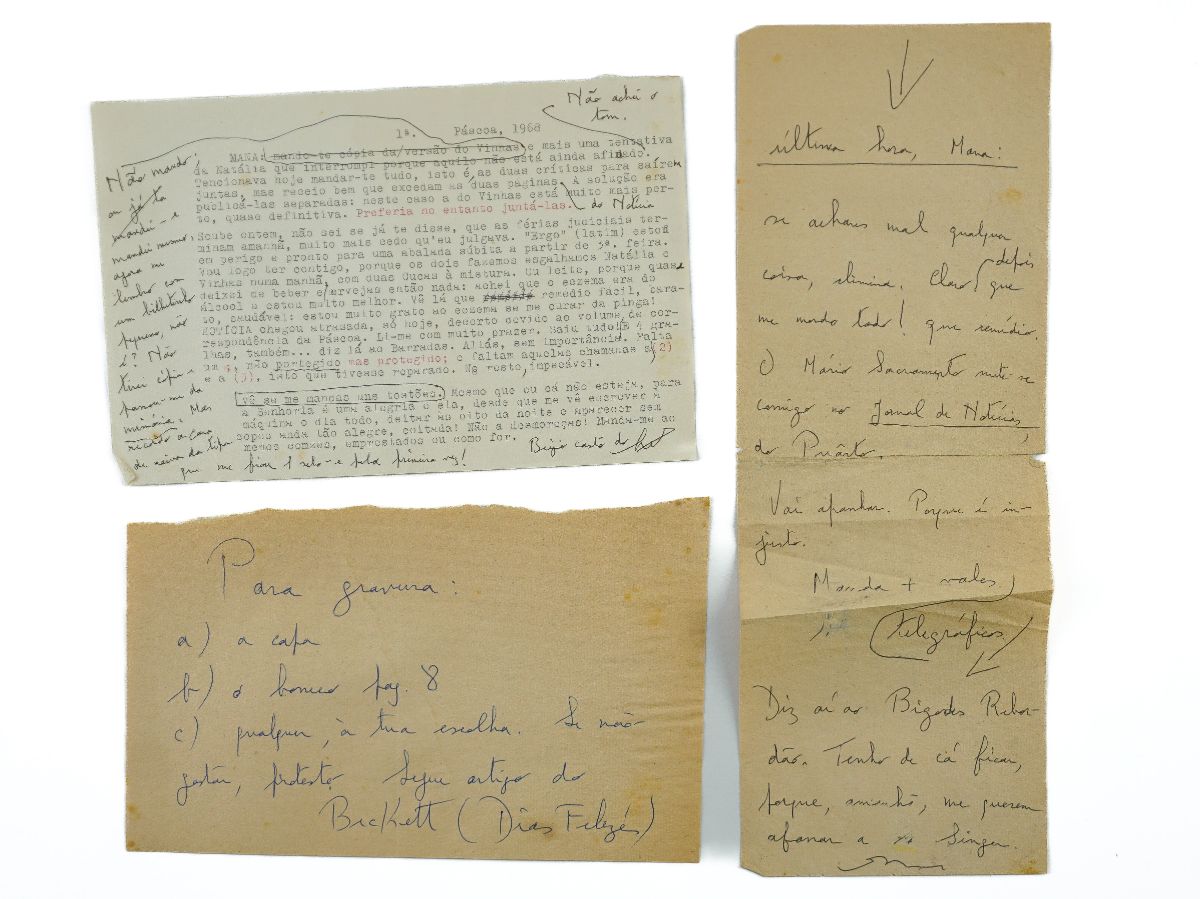 Não achei o
tom.
1ª. Páscoa, 1968
MANA: mando-te cópia da/versão do Vinhas e mais uma tentativa
da Natália que interrompi porque aquilo não está ainda afinado.
Tencionava hoje mandar-te tudo, isto é, as duas críticas para saírem
juntas, mas receio bem que excedam as duas páginas. A solução era
publicá-las separadas: neste caso a do Vinhas está muito mais per-
to, quase definitiva. Preferia no entanto juntá-las. do Notícia
Soube ontem, não sei se já te disse, que as férias judiciais ter-
minam amanhã, muito mais cedo qu'eu julgava. "Ergo" (latim) estoü
em perigo e pronto para uma abalada súbita a partir de 3ª. feira.
Vou logo ter contigo, porque os dois fazemos esgalhamos Natália e
Vinhas numa manhã, com duas Cucas à mistura. Ou leite, porque quase
deixei de beber e/ervejas então nada: achei que o eczema era do
álcool e estou muito melhor. Vê lá que remédio fácil, bara-
to, saudável: estou muito grato ao eczema se me curar da pinga!
NOTÍCIA chegou atrasada, só hoje, decerto devido ao volume de cor-
respondência da Páscoa. Li-me com muito prazer. Saiu tudo! E 4 gra-
lhas, também... diz lá ao Barradas. Aliás, sem importância. Falta
um s, não portegido mas protegido; e faltam aquelas chamanas s (2)
e a (3), isto que tivesse reparado. No resto, impecável.
Vê se me mandas uns tostões. Mesmo que eu cá não esteja, para
a Senhoria é uma alegria e ela, desde que me vê escrever à
máquina o dia todo, deitar às oito da noite e aparecer sem
copos anda tão alegre, coitada! Não a desmoreças! Manda-me ao
menos comxes, emprestados ou como for.
Beijo casto do
Não mando,
ou já ta
mandei - e
mandei mesmo,
agora me
lembro com
um bilhetinho
pequeno, não
é? Não
tirei cópia -
passou-me da
memória. Mas
risado a cara
que me ficou 1 selo - e pela primeira vez!
Para gravura:
a) a capa
b) o boneco pag. 8
c) qualquer, à tua escolha. Se não
gostar, protesto. Segue artigo do
Beckett (Dias Felizes)
última hora, Mana:
se achares mal qualquer
coisa, elimina. Claro que depois
me mando todo! que remédio
O Mário Sacramento mete-se
comigo no Jornal de Notícias,
do Puârto.
Vai apanhar. Porque é in-
justo.
Manda + vales
telegráficos.
Diz aí ao Bigodes Rebor-
dão. Tenho de cá ficar,
porque, amanhã, me querem
afanar a Singer.